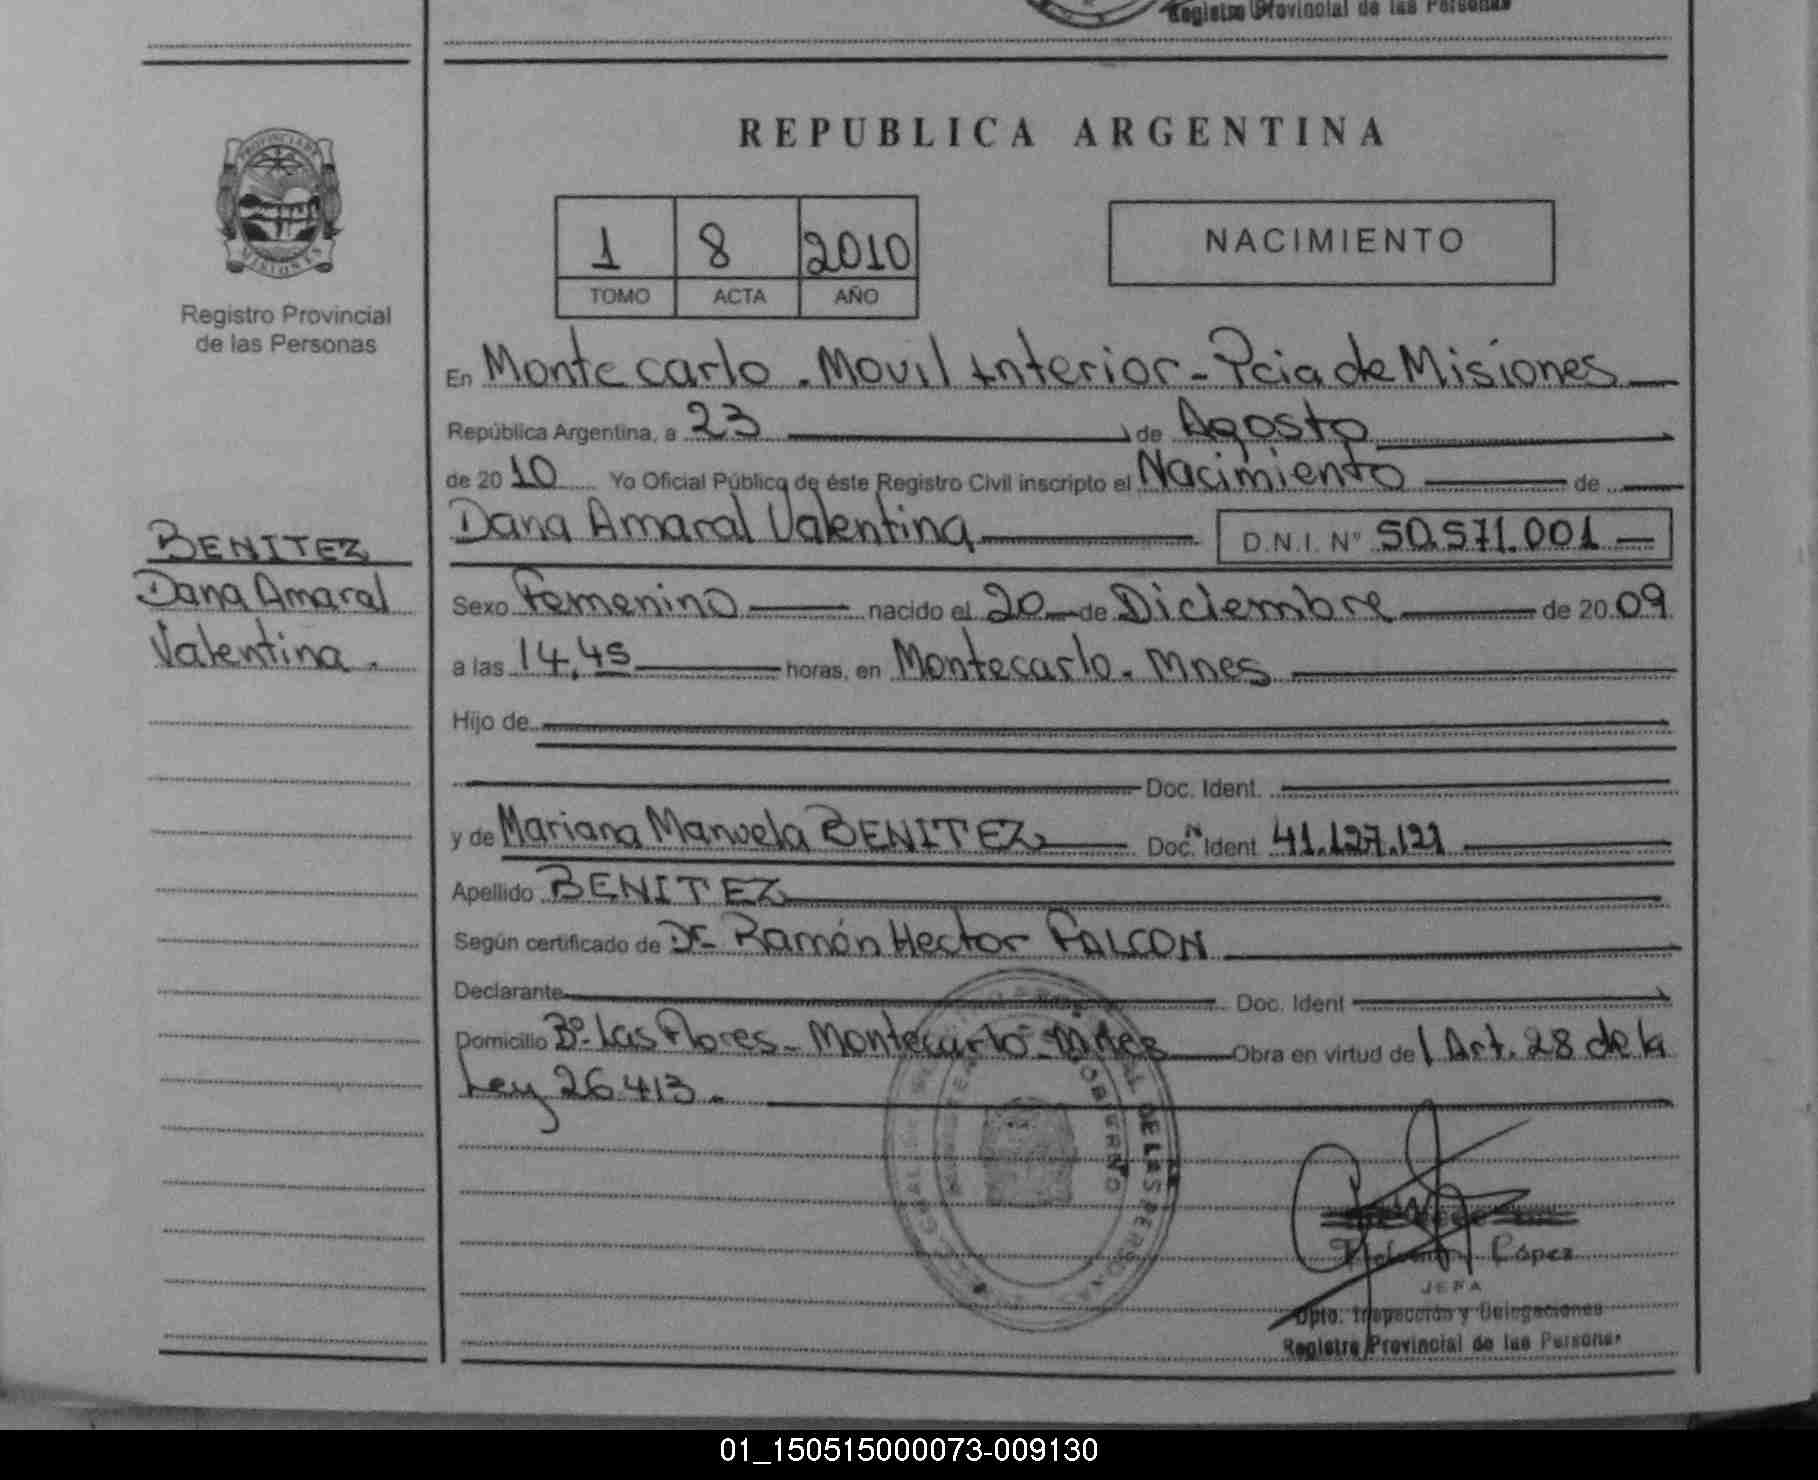 Registro Provincial de las Personas
REPUBLICA ARGENTINA
PROVINCIA DE
MISIONES
Registro Provincial
de las Personas
1 8 2010
TOMO ACTA AÑO
NACIMIENTO
En Montecarlo. Movil Interior - Pcia de Misiones
República Argentina, a 23 de Agosto
de 2010 Yo Oficial Público de éste Registro Civil inscripto el Nacimiento de
Dana Amaral Valentina D.N.I. Nº 50.571.001
BENITEZ
Dana Amaral
Valentina.
Sexo Femenino nacido el 20 de Diciembre de 2009
a las 14,45 horas, en Montecarlo. Mnes
Hijo de
Doc. Ident.
y de Mariana Manuela BENITEZ Doc. N Ident 41.127.121
Apellido BENITEZ
Según certificado de Dr. Ramón Hector FALCON
Declarante Doc. Ident
Domicilio Bº Las Flores - Montecarlo - Mnes Obra en virtud del Art. 28 de la
Ley 26.413.
López
JEFA
Dpto. Inspección y Delegaciones
Registro Provincial de las Personas
01_150515000073-009130